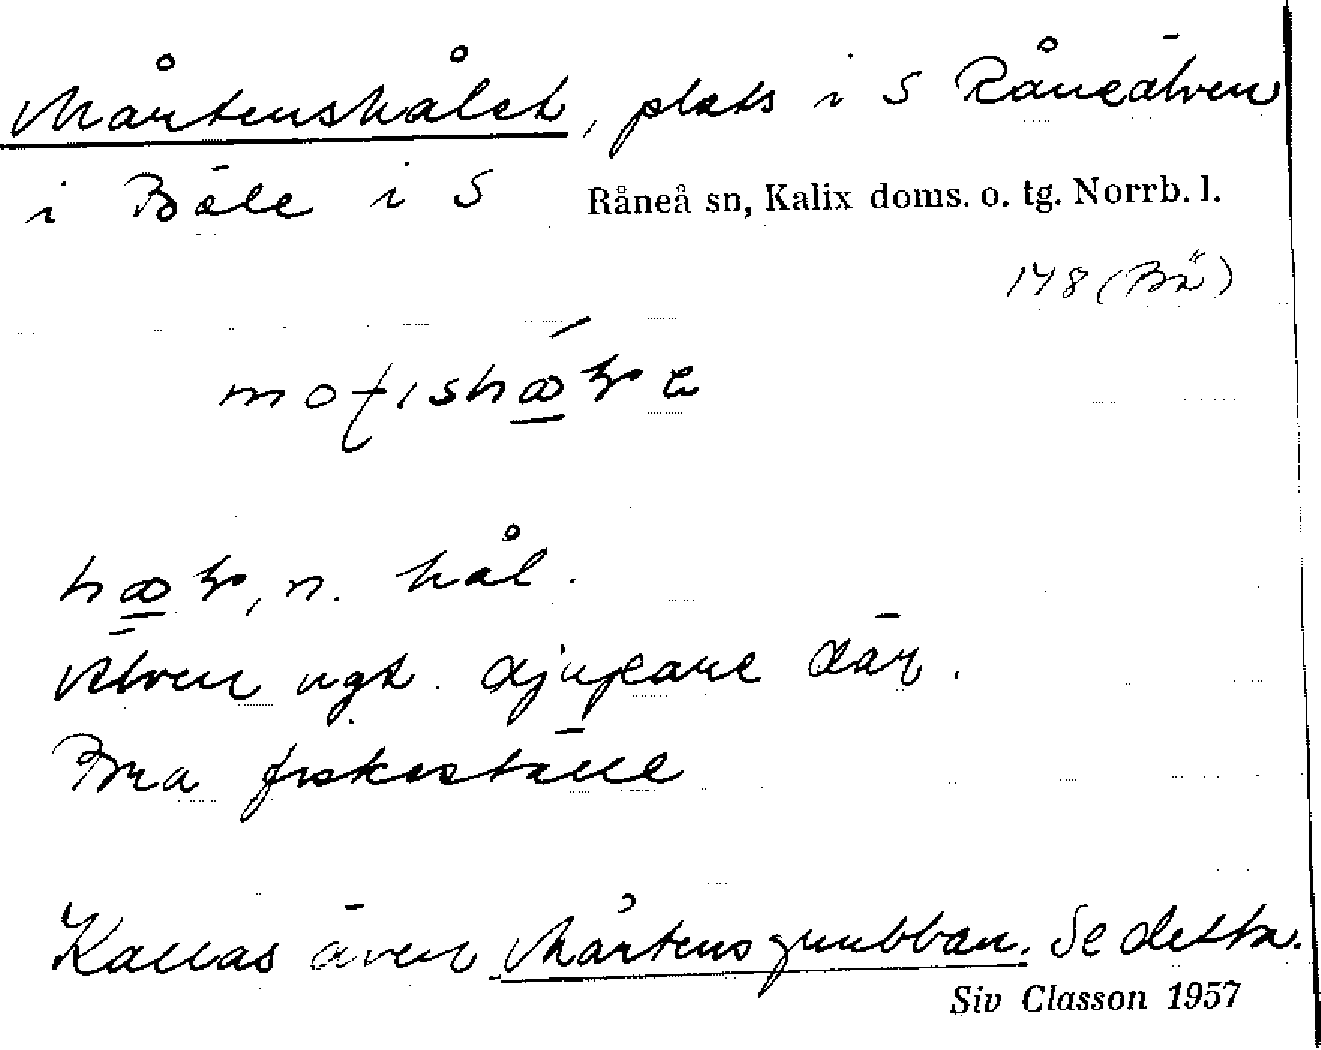 Mårtenshålet, plats i S Råneälven
i Böle i S Råneå sn, Kalix doms. o. tg. Norrb. l.
148 (Bä)
hål.
Älven ngt. djupare där.
Bra fiskeställe
Kallas även Mårtensgrubban. Se detta.
Siv Classon 1957